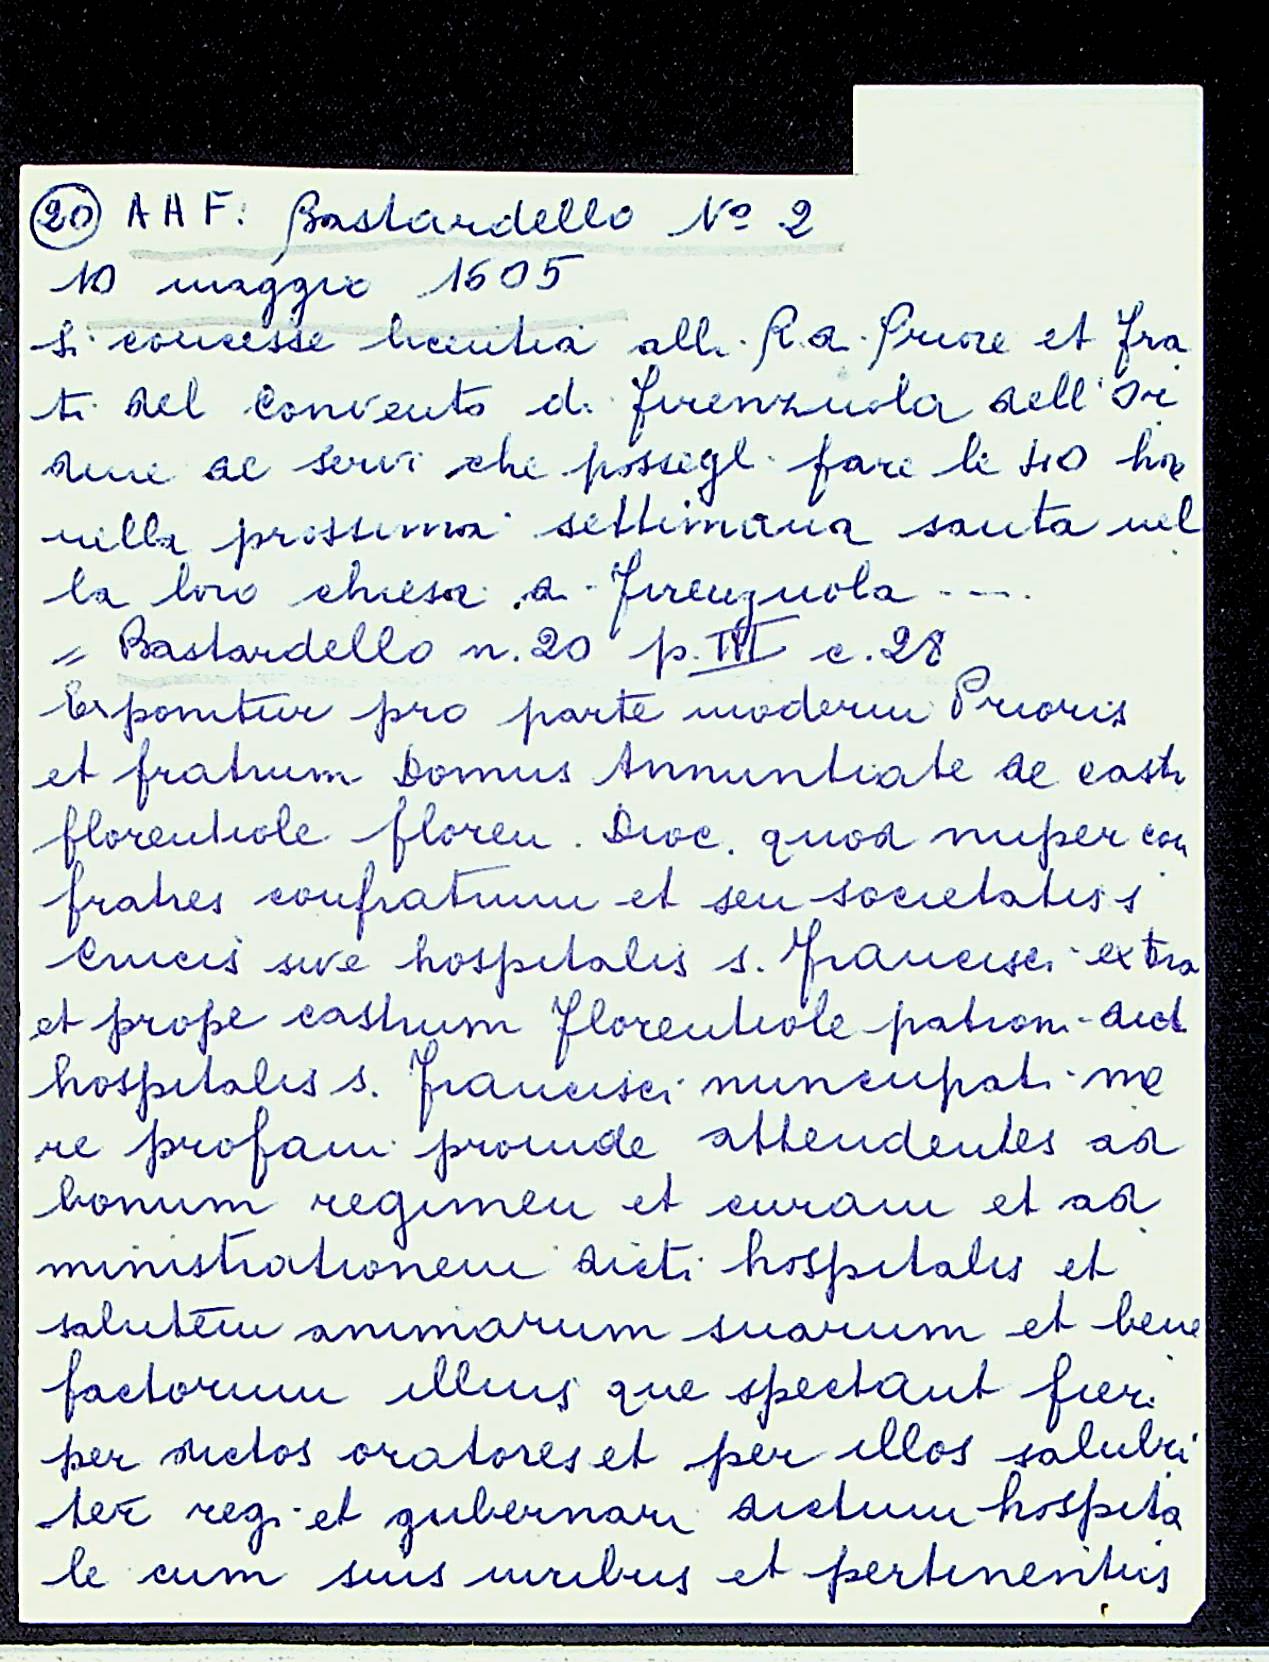 20 A A F: Bastardello Nº 2
10 maggio 1605
Si concesse licentia alli R.di Priore et fra
ti del Convento di Firenzuola dell'Or
dine de Servi che possegl. fare le 40 hore
nella prossima settimana santa nel
la loro chiesa di Firenzuola ----.
= Bastardello n. 20 p. III c. 28
Exponitur pro parte moderni Prioris
et fratrum Domus Annuntiate de castr
florentiole floren. Dioc. quod nuper con
fratres confratrum et seu societatis s
Crucis sive hospitalis s. Francisci extra
et prope castrum Florentiole patroni dict
hospitalis s. Francisci nuncupati me
re profani proinde attendentes ad
bonum regimen et curam et ad
ministrationem dicti hospitalis et
salutem animarum suarum et bene
factorum illius que spectant fieri
per dictos oratores et per illos salubri
ter regi et gubernari dictum hospita
le cum suis iuribus et pertinentiis